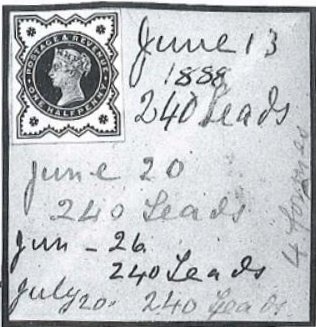 POSTAGE & REVENUE
ONE HALFPENNY
June 13
1888
240 Leads
June 20
240 Leads
Jun - 26
240 Leads
July 20. 240 Leads
4